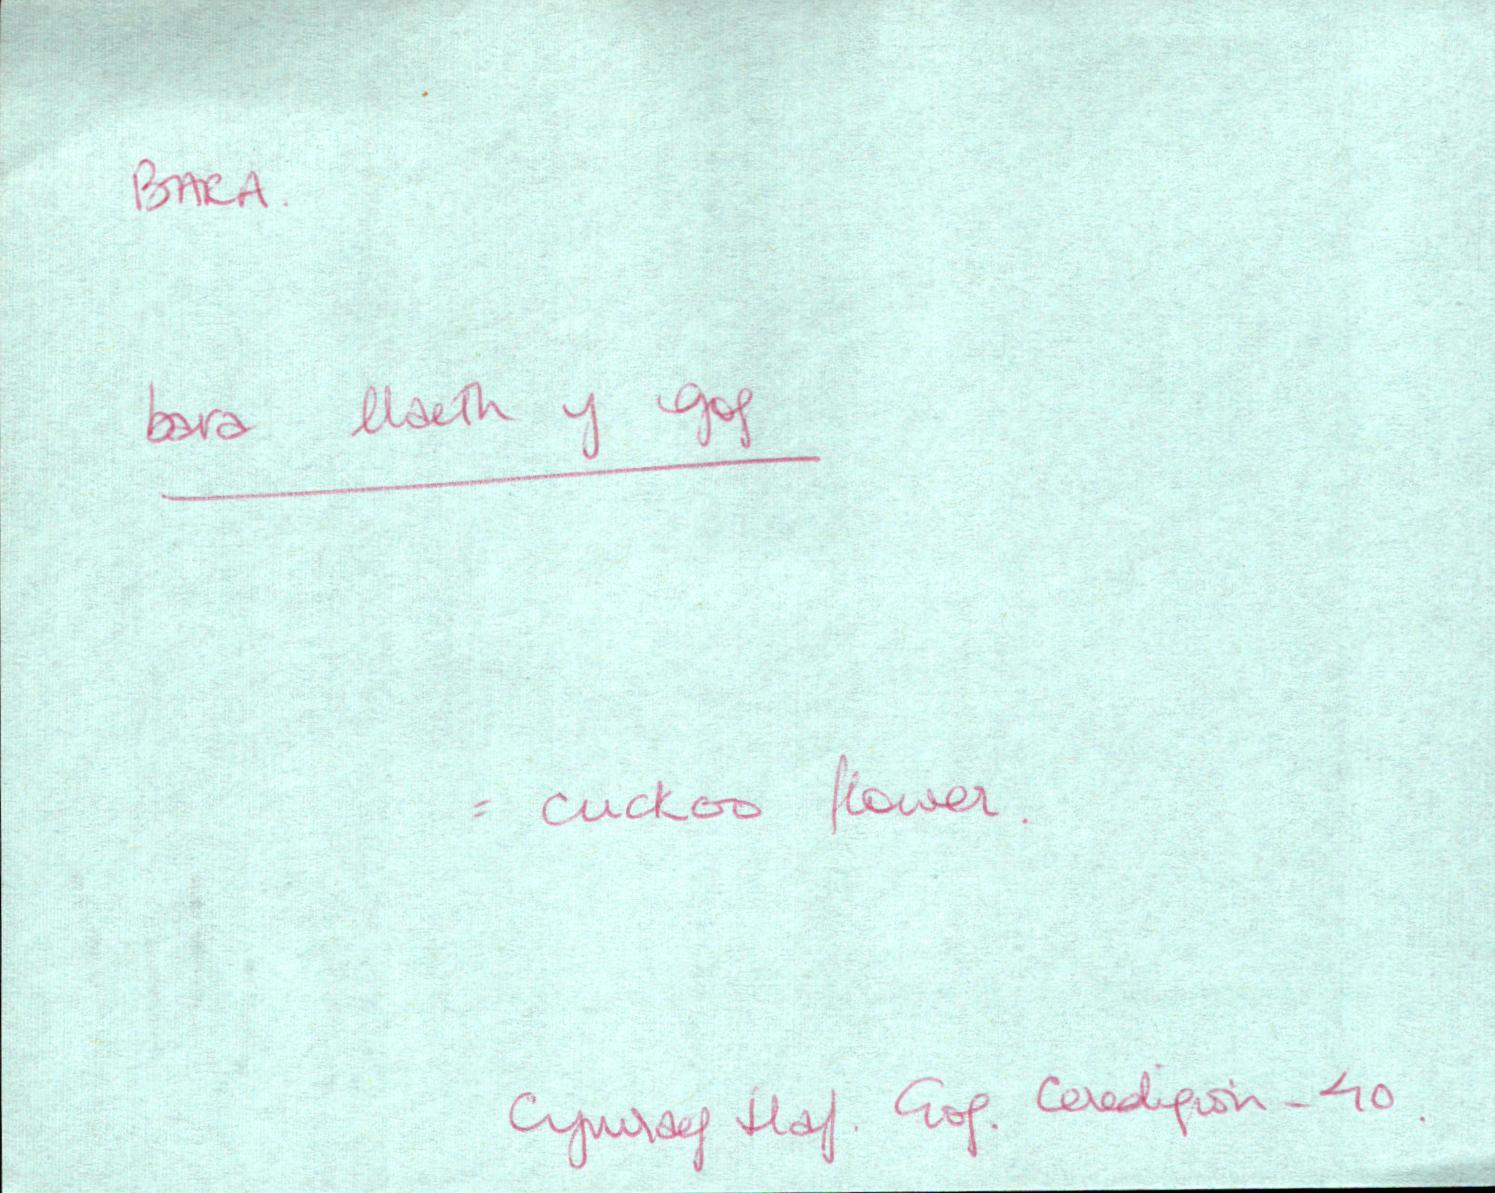 BARA.
bara llaeth y gog
= cuckoo flower.
Cymraeg Llaf. Gog. Ceredigion - 40.